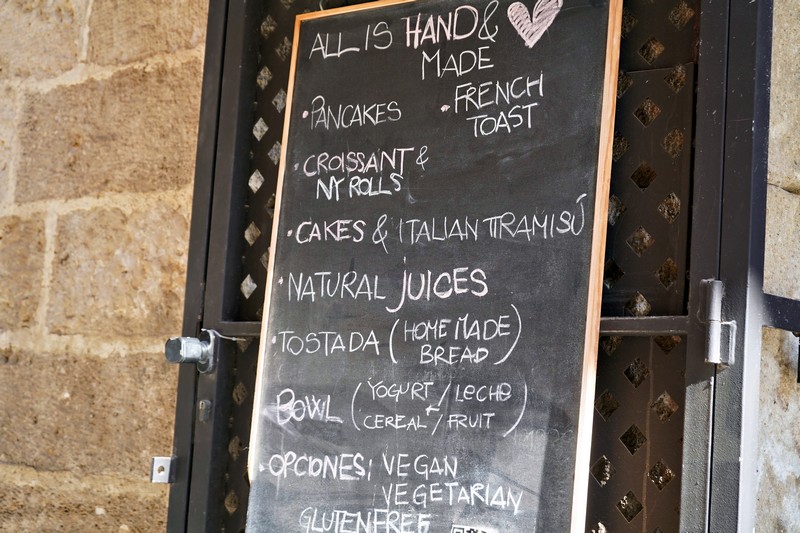 ALL IS HAND &
MADE
• PANCAKES
• FRENCH
TOAST
• CROISSANT &
NY ROLLS
• CAKES & ITALIAN TIRAMISÚ
• NATURAL JUICES
• TOSTADA (HOME MADE
BREAD)
BOWL (YOGURT / LECHE
CEREAL / FRUIT)
• OPCIONES: VEGAN
VEGETARIAN
GLUTENFREE